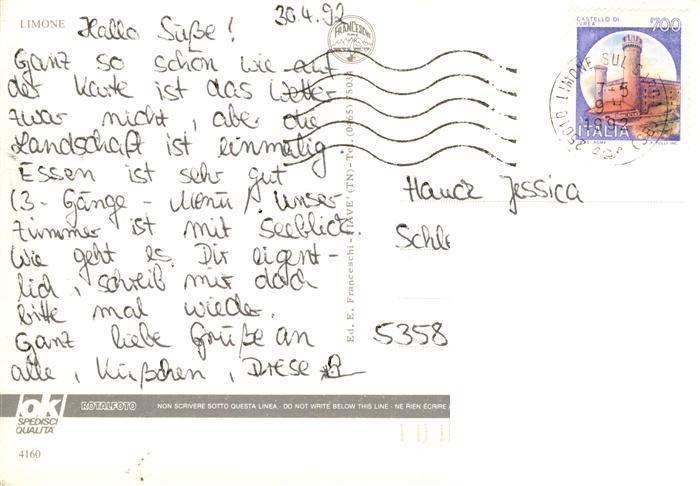 LIMONE
30.4.92
Hallo Süße!
Ganz so schön wie auf
der Karte ist das Wetter
zwar nicht, aber die
Landschaft ist einmalig
Essen ist sehr gut
(3-Gänge-Menü). Unser
Zimmer ist mit Seeblick.
Wie geht es. Dir eigent-
lich, schreib mir doch
bitte mal wieder.
Ganz liebe Grüße an
alle, Küßchen,
FRANCESCHI
Ed. E. Franceschi -
CASTELLO DI
IVREA
700
ITALIA
25010 LIMONE SUL
1992
Hauck Jessica
Schle
5358
ok
SPEDISCI
QUALITA'
ROTALFOTO
NON SCRIVERE SOTTO QUESTA LINEA - DO NOT WRITE BELOW THIS LINE - NE RIEN ÉCRIRE
4160